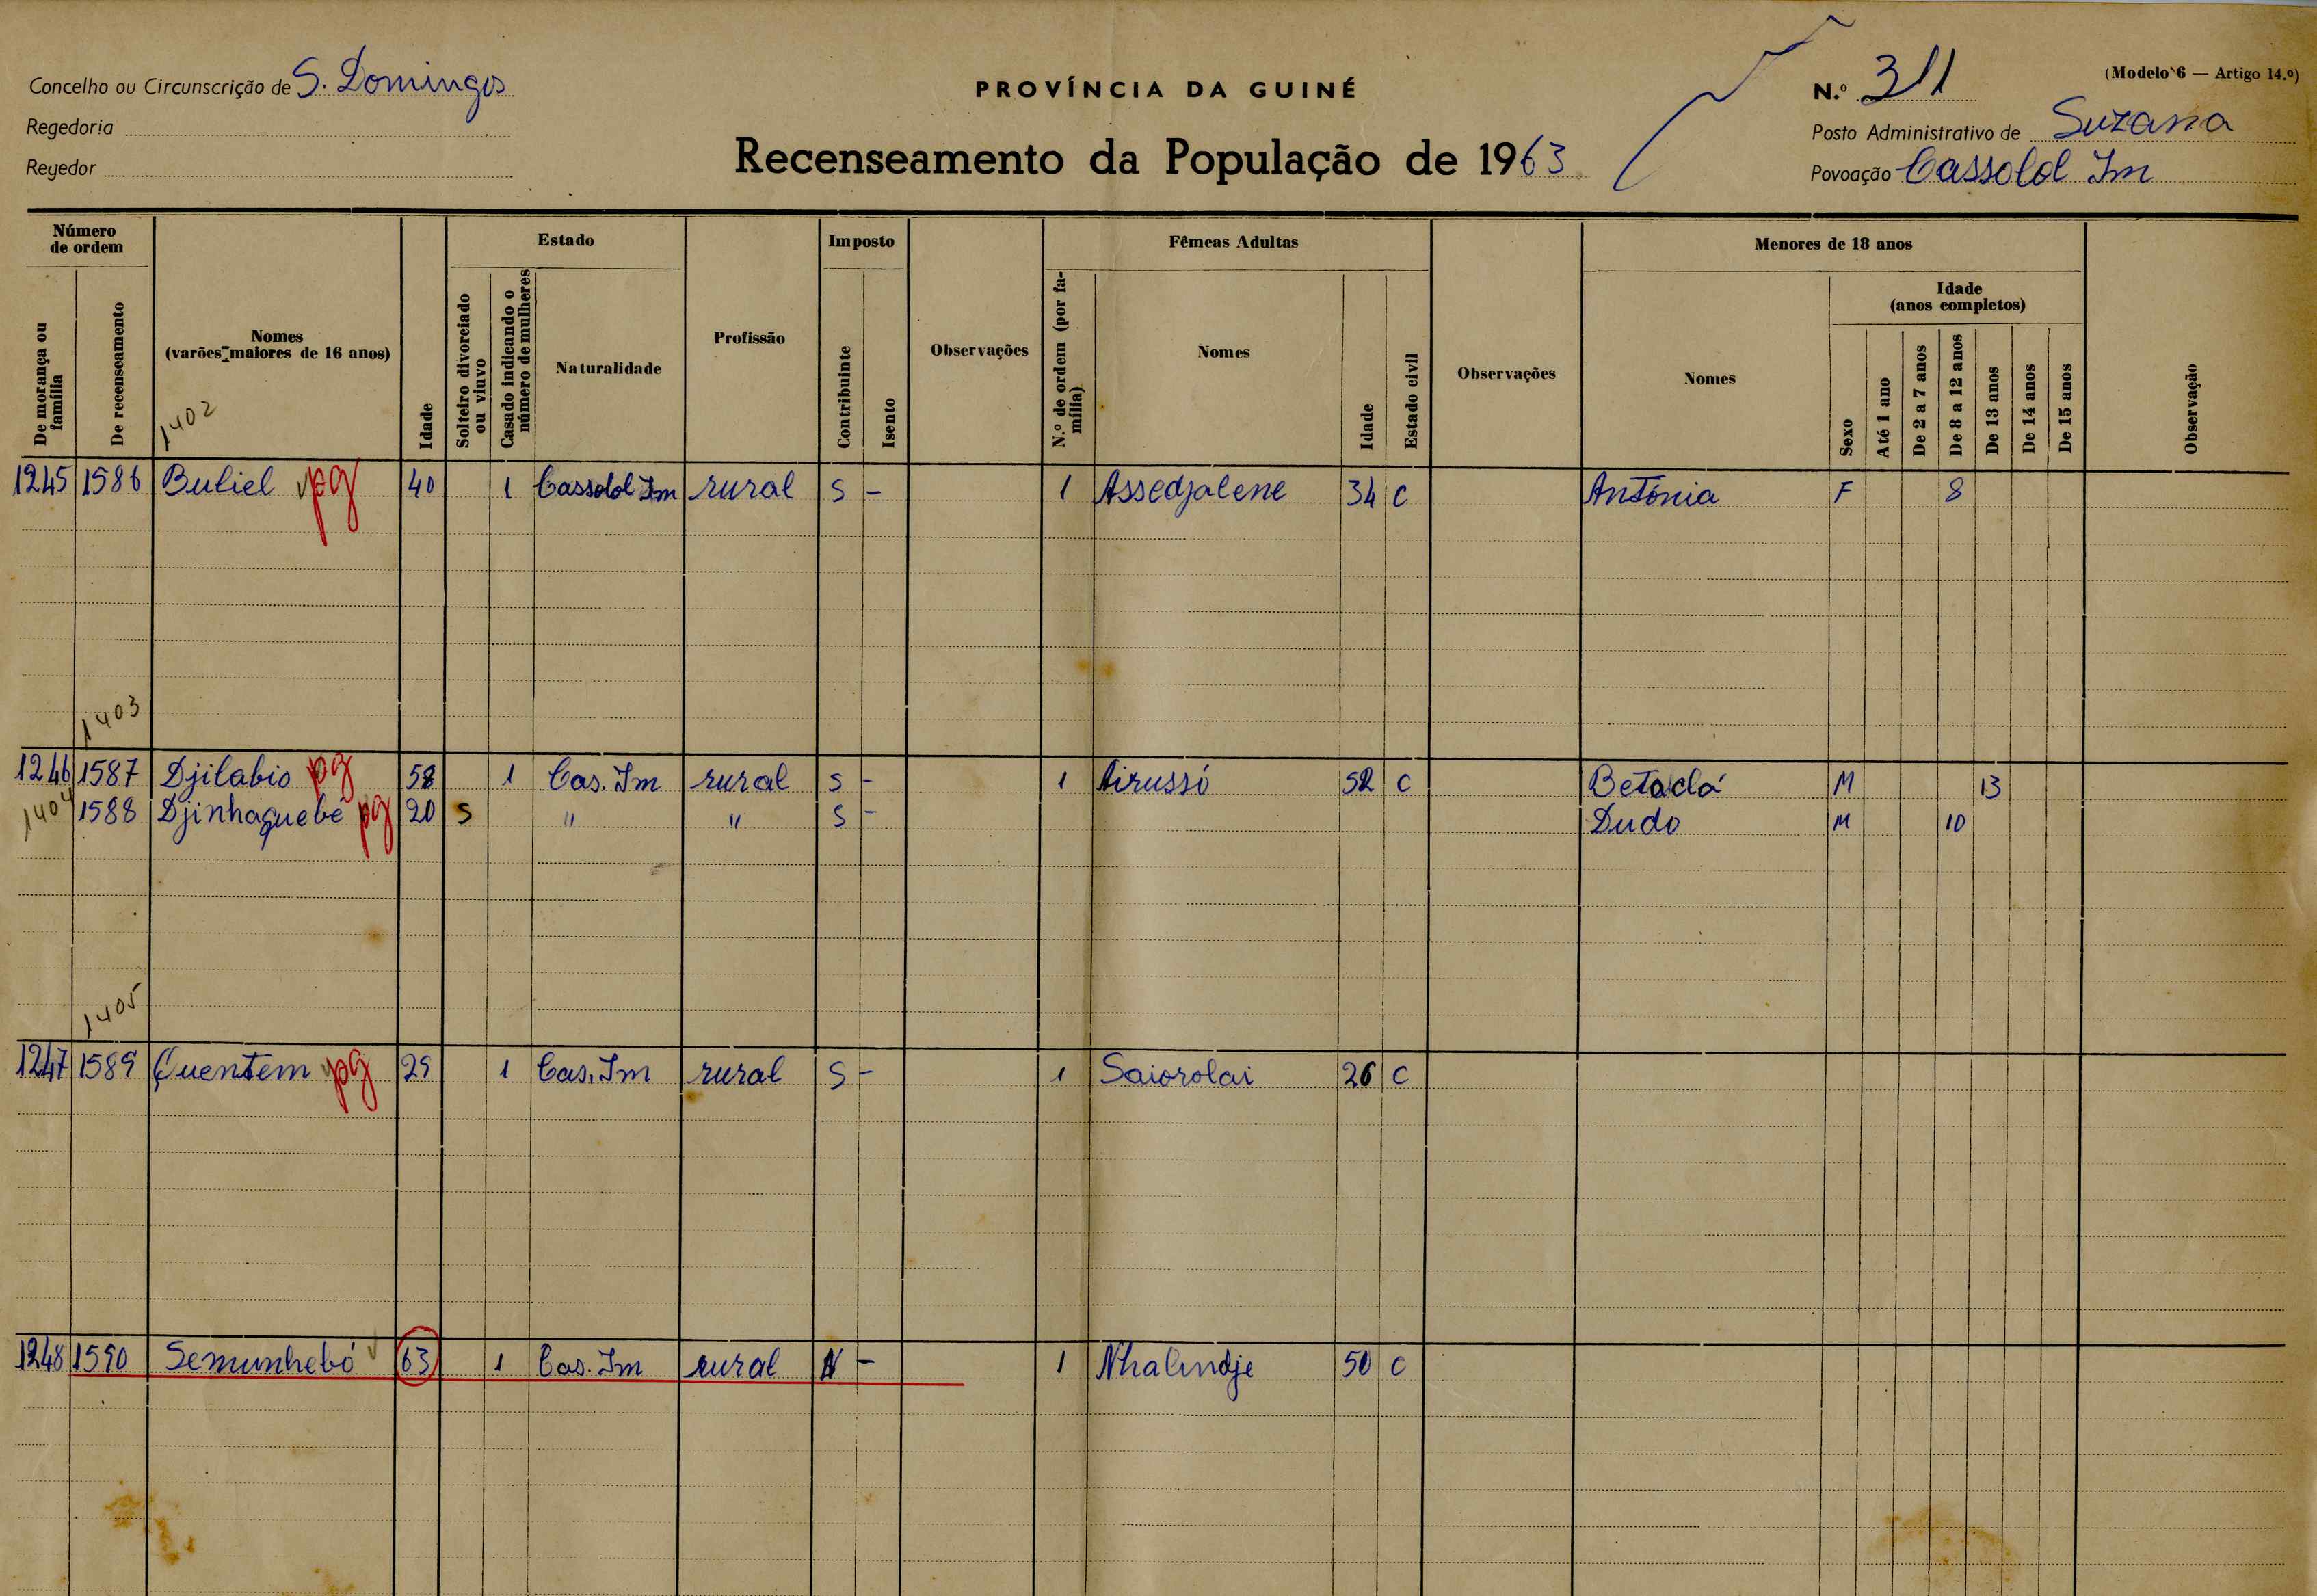 Concelho ou Circunscrição de S. Domingos
Regedoria
Regedor
PROVÍNCIA DA GUINÉ
Recenseamento da População de 1963
(Modelo 6 — Artigo 14.º)
N.º 311
Posto Administrativo de Suzana
Povoação Cassolol Im
Número de ordem
De morança ou família
De recenseamento
Nomes
(varões maiores de 16 anos)
Idade
Estado
Solteiro divorciado ou viuvo
Casado indicando o número de mulheres
Naturalidade
Profissão
Imposto
Contribuinte
Isento
Observações
Fêmeas Adultas
N.º de ordem (por família)
Nomes
Idade
Estado civil
Observações
Menores de 18 anos
Nomes
Sexo
Idade
(anos completos)
Até 1 ano
De 2 a 7 anos
De 8 a 12 anos
De 13 anos
De 14 anos
De 15 anos
Observação
1402
1245 1586 Buliel pg 40 1 Cassolol Im rural S - 1 Assedjalene 34 C Antónia F 8
1403
1246 1587 Djilabio pg 58 1 Cas. Im rural S - 1 Airussó 52 C Betadá M 13
1404 1588 Djinhaquebe pg 20 S " " S - Dudo M 10
1405
1247 1589 Quentem pg 29 1 Cas. Im rural S - 1 Saiorolai 26 C
1248 1590 Semunhebó 63 1 Cas. Im rural N - 1 Nhalindje 50 C